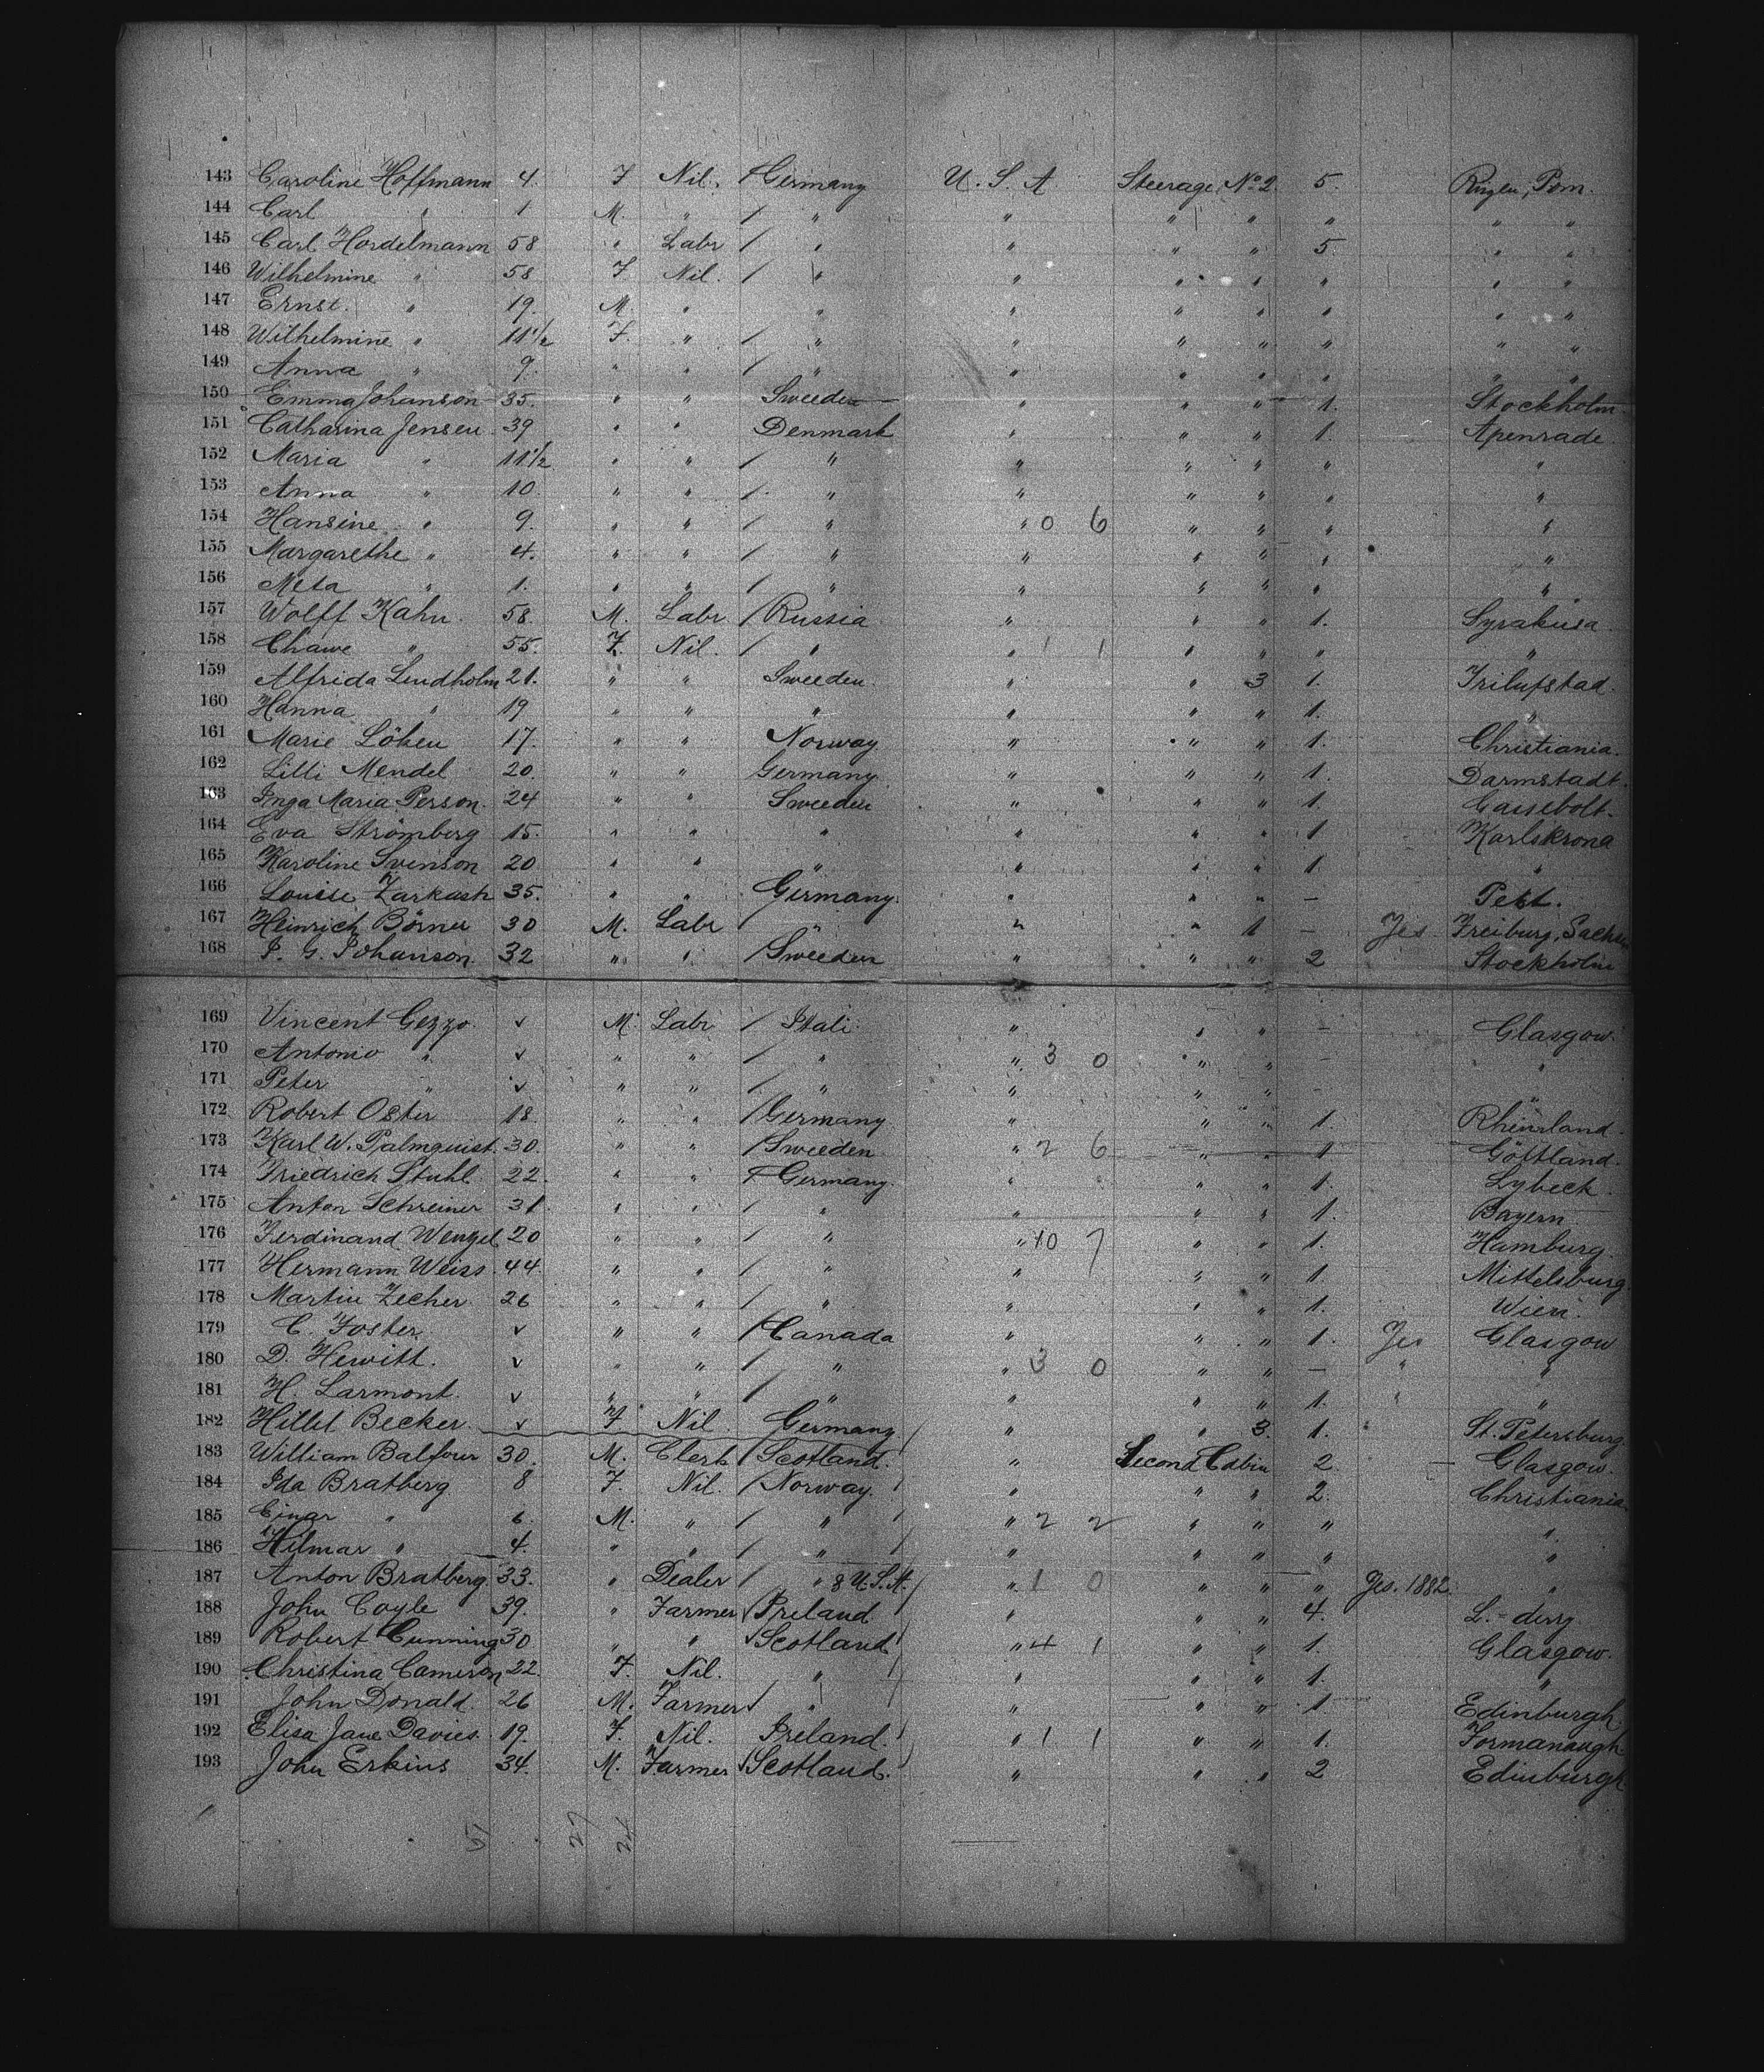 143 Caroline Hoffmann 4. F Nil. / Germany U. S. A Steerage No 2 5. Rügen, Pom.
144 Carl " 1 M. " / " " " " " " "
145 Carl Hordelmann 58 " Labr / " " " " 5 " "
146 Wilhelmine " 58 F Nil. / " " " " " " "
147 Ernst. " 19. M. " " " " " " " "
148 Wilhelmine " 11 1/2 F. " / " " " " " " "
149 Anna " 9. " " / " " " " " " "
150 Emma Johanson 35. " " Sweeden " " " 1. Stockholm
151 Catharina Jensen 39 " " Denmark " " " 1. Apenrade
152 Maria " 11 1/2 " " / " " " " " "
153 Anna " 10. " " / " " " " " "
154 Hansine " 9. " " / " " 0 6 " " " "
155 Margarethe " 4. " " / " " " " " "
156 Meta " 1. " " / " " " " " "
157 Wolff Kahn. 58. M. Labr / Russia " " " 1. Syrakusa
158 Chawe " 55. F. Nil. / " " 1 1 " " " "
159 Alfrida Lindholm 21. " " Sweeden. " " 3 1.
160 Hanna " 19 " " " " " " 1. "
161 Marie Löken 17. " " Norway " " " 1. Christiania.
162 Lilli Mendel 20. " " Germany " " " 1. Darmstadt.
163 Inga Maria Person. 24 " " Sweeden " " " 1.
164 Eva Strömberg 15. " " " " " " 1 Karlskrona
165 Karoline Svenson 20 " " " " " " 1. "
166 Louise Zarkash 35. " " Germany. " " " — Pest.
167 Heinrich Börner 30 M. Labr / " " " 1 — Yes Freiburg, Sachsen
168 P. G. Johanson. 32 " " / Sweeden " " " 2 Stockholm
169 Vincent Gezzo. v M. Labr / Itali " " " — Glasgow
170 Antonio " v " " / " " 3 0 " " — "
171 Peter " v " " / " " " " — "
172 Robert Oster 18. " " / Germany " " " 1. Rheinland.
173 Karl W. Palmquist. 30. " " / Sweeden " 2 6 " " 1 Göttland.
174 Friedrich Stuhl. 22. " " / Germany. " " " 1. Lybeck.
175 Anton Schreiner 31. " " / " " " " 1. Bayern
176 Ferdinand Wenzel 20 " " / " " 10 7 " " 1. Hamburg.
177 Hermann Weiss. 44. " " / " " " " 1. Mittelsburg.
178 Martin Zecher. 26 " " / " " " " 1. Wien.
179 C. Foster. v " " / Canada " " " 1. Yes Glasgow
180 D. Hewitt. v " " / " " 3 0 " " — " "
181 H. Larmont. v " " / " " " " 1. " "
182 Hillel Becker. v F Nil. Germany " " 3. 1. St. Petersburg.
183 William Balfour 30. M. Clerk / Scotland. " Second Cabin 2. — Glasgow.
184 Ida Bratberg 8 F. Nil. / Norway. " " " 2. Christiania
185 Einar " 6. M. " / " " 2 2 " " " "
186 Hilmar " 4. " " / " " " " " "
187 Anton Bratberg. 33. " Dealer / " & U.S.A. " 1 0 " " " Yes. 1882. "
188 John Coyle 39. " Farmer / Ireland " " " 4. L.-derry
189 Robert Cunning 30 " " / Scotland " 4 1 " " 1. Glasgow.
190 Christina Cameron 22. F. Nil. " " " " 1. "
191 John Donald. 26 M. Farmer / " " " " 1 Edinburgh
192 Elisa Jane Davies. 19. F. Nil. Ireland. " 1 1 " " 1. Formanaugh
193 John Erkins 34. M. Farmer / Scotland. " " " 2 Edinburgh.